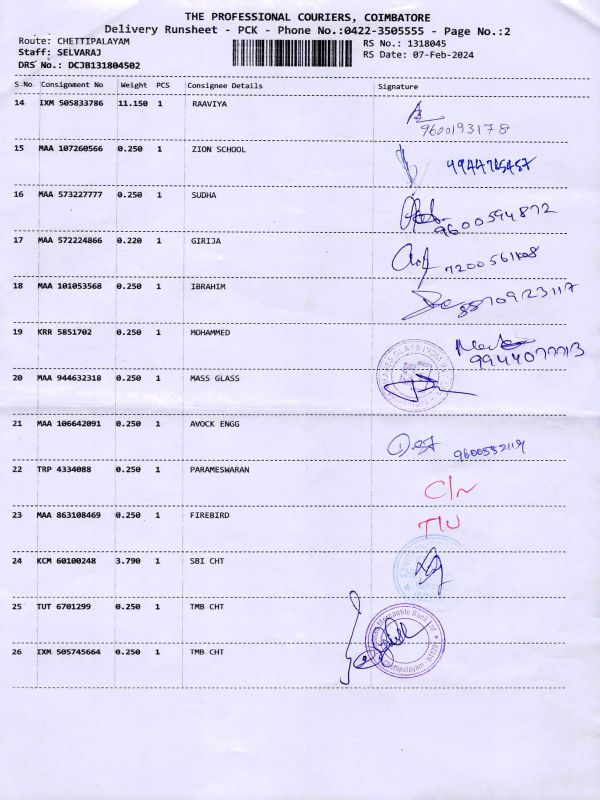 THE PROFESSIONAL COURIERS, COIMBATORE
Delivery Runsheet - PCK - Phone No.:0422-3505555 - Page No.:2
Route: CHETTIPALAYAM RS No.: 1318045
Staff: SELVARAJ RS Date: 07-Feb-2024
DRS No.: DCJB131804502
S No Consignment No Weight PCS Consignee Details Signature
14 IXM 505833786 11.150 1 RAAVIYA
9600193178
15 MAA 107260566 0.250 1 ZION SCHOOL
16 MAA 573227777 0.250 1 SUDHA
9600594872
17 MAA 572224866 0.220 1 GIRIJA
18 MAA 101053568 0.250 1 IBRAHIM
8870923117
19 KRR 5851702 0.250 1 MOHAMMED
20 MAA 944632318 0.250 1 MASS GLASS
21 MAA 106642091 0.250 1 AVOCK ENGG
22 TRP 4334088 0.250 1 PARAMESWARAN
23 MAA 863108469 0.250 1 FIREBIRD
24 KCM 60100248 3.790 1 SBI CHT
25 TUT 6701299 0.250 1 TMB CHT
Mercantile Bank Ltd
26 IXM 505745664 0.250 1 TMB CHT